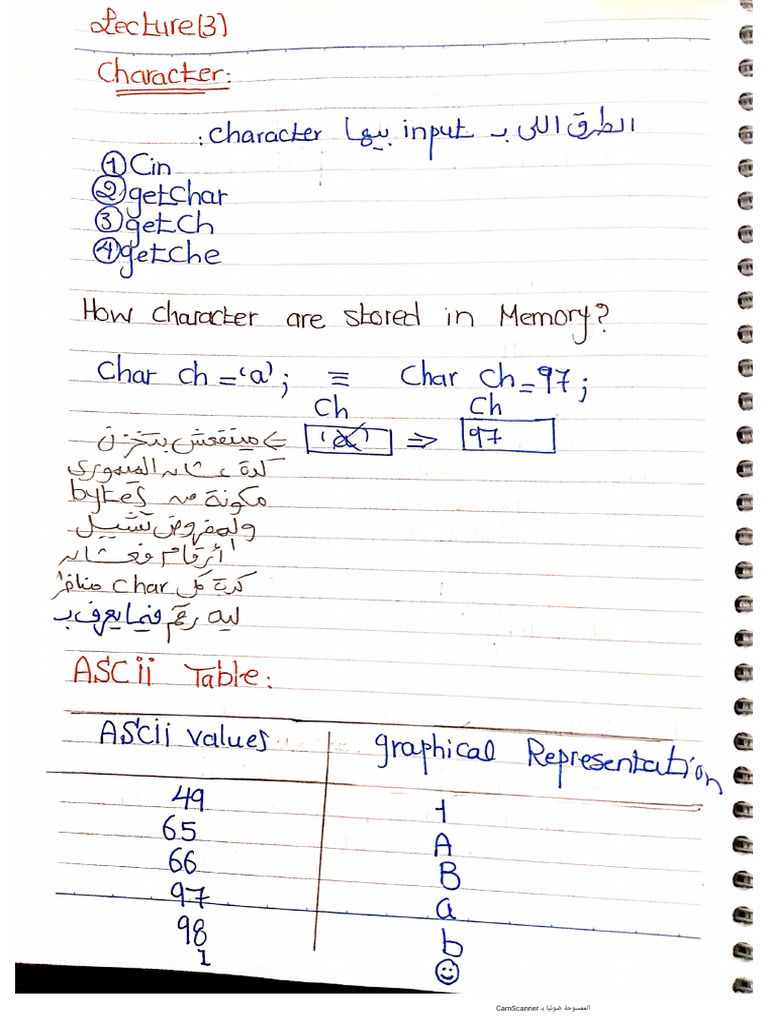 Lecture(3)
Character:
الطرق اللى بـ input بيها character :
① Cin
② getchar
③ getch
④ getche
How character are stored in Memory?
Char ch = 'a'; ≡ Char ch = 97;
Ch Ch
'a' ⇒ 97
مينفعش يتخزن
كدة عشان الميمورى
مكونة من bytes
والمفروض تشيل
أرقام فعشان
كدة كل char مناظر
ليه رقم فيما يعرف بـ
ASCii Table:
ASCii values graphical Representation
49 1
65 A
66 B
97 a
98 b
1 ☺
الممسوحة ضوئيا بـ CamScanner